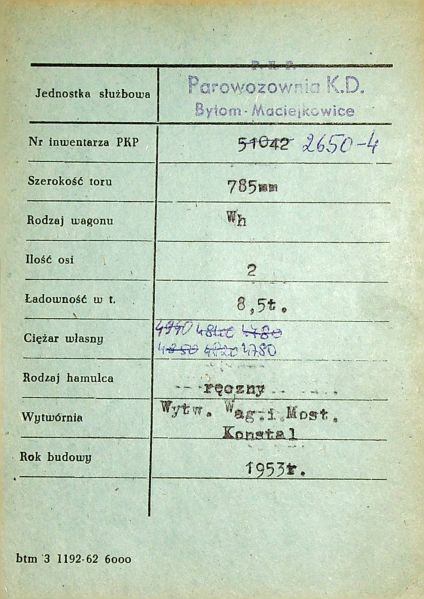 P. K. P.
Parowozownia K.D.
Jednostka służbowa
Bytom-Maciejkowice
Nr inwentarza PKP 51042 2650-4
Szerokość toru 785mm
Rodzaj wagonu Wh
Ilość osi 2
Ładowność w t. 8,5t.
4940 4840 4780
Ciężar własny
4850 4820 4780
Rodzaj hamulca ręczny
Wytw. Wag.i Most.
Wytwórnia
Konstal
Rok budowy 1953r.
btm 3 1192-62 6000